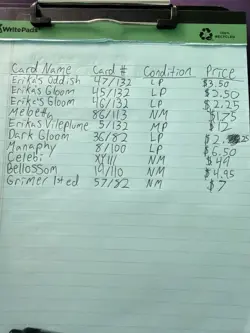 WritePads
Card Name Card # Condition Price
Erika's Oddish 47/132 LP $3.50
Erika's Gloom 45/132 LP $3.50
Erika's Gloom 46/132 LP $2.25
86/113 NM $1.75
Erikas Vileplume 5/132 MP $12
Dark Gloom 36/82 LP
Manaphy 8/100 LP $6.50
Celebi NM $49
Bellossom 19/110 NM $4.95
Grimer 1sted 57/82 NM $7